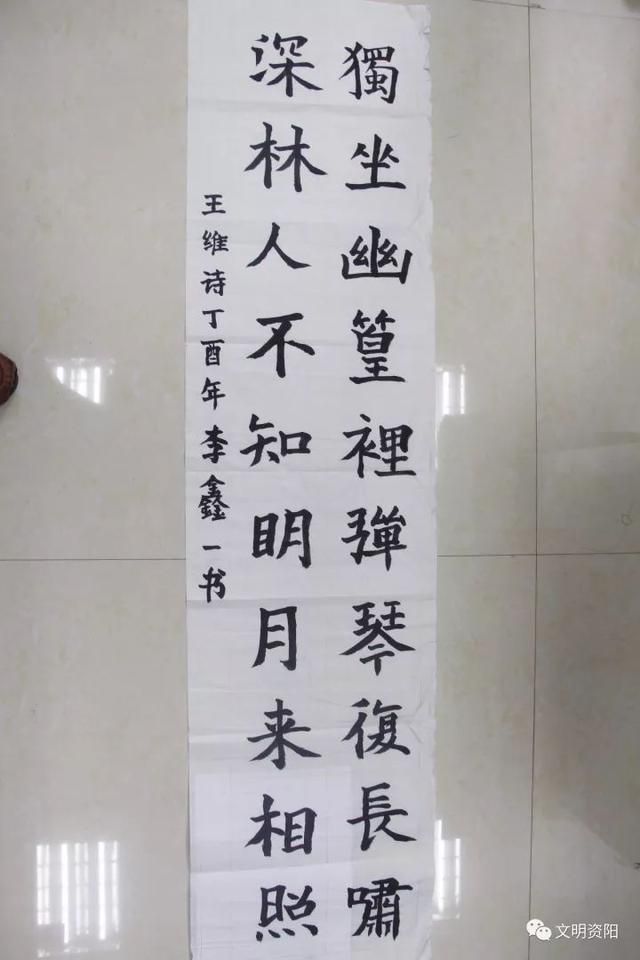 獨坐幽篁裡彈琴復長嘯
深林人不知明月来相照
王维诗丁酉年李鑫一书
文明资阳